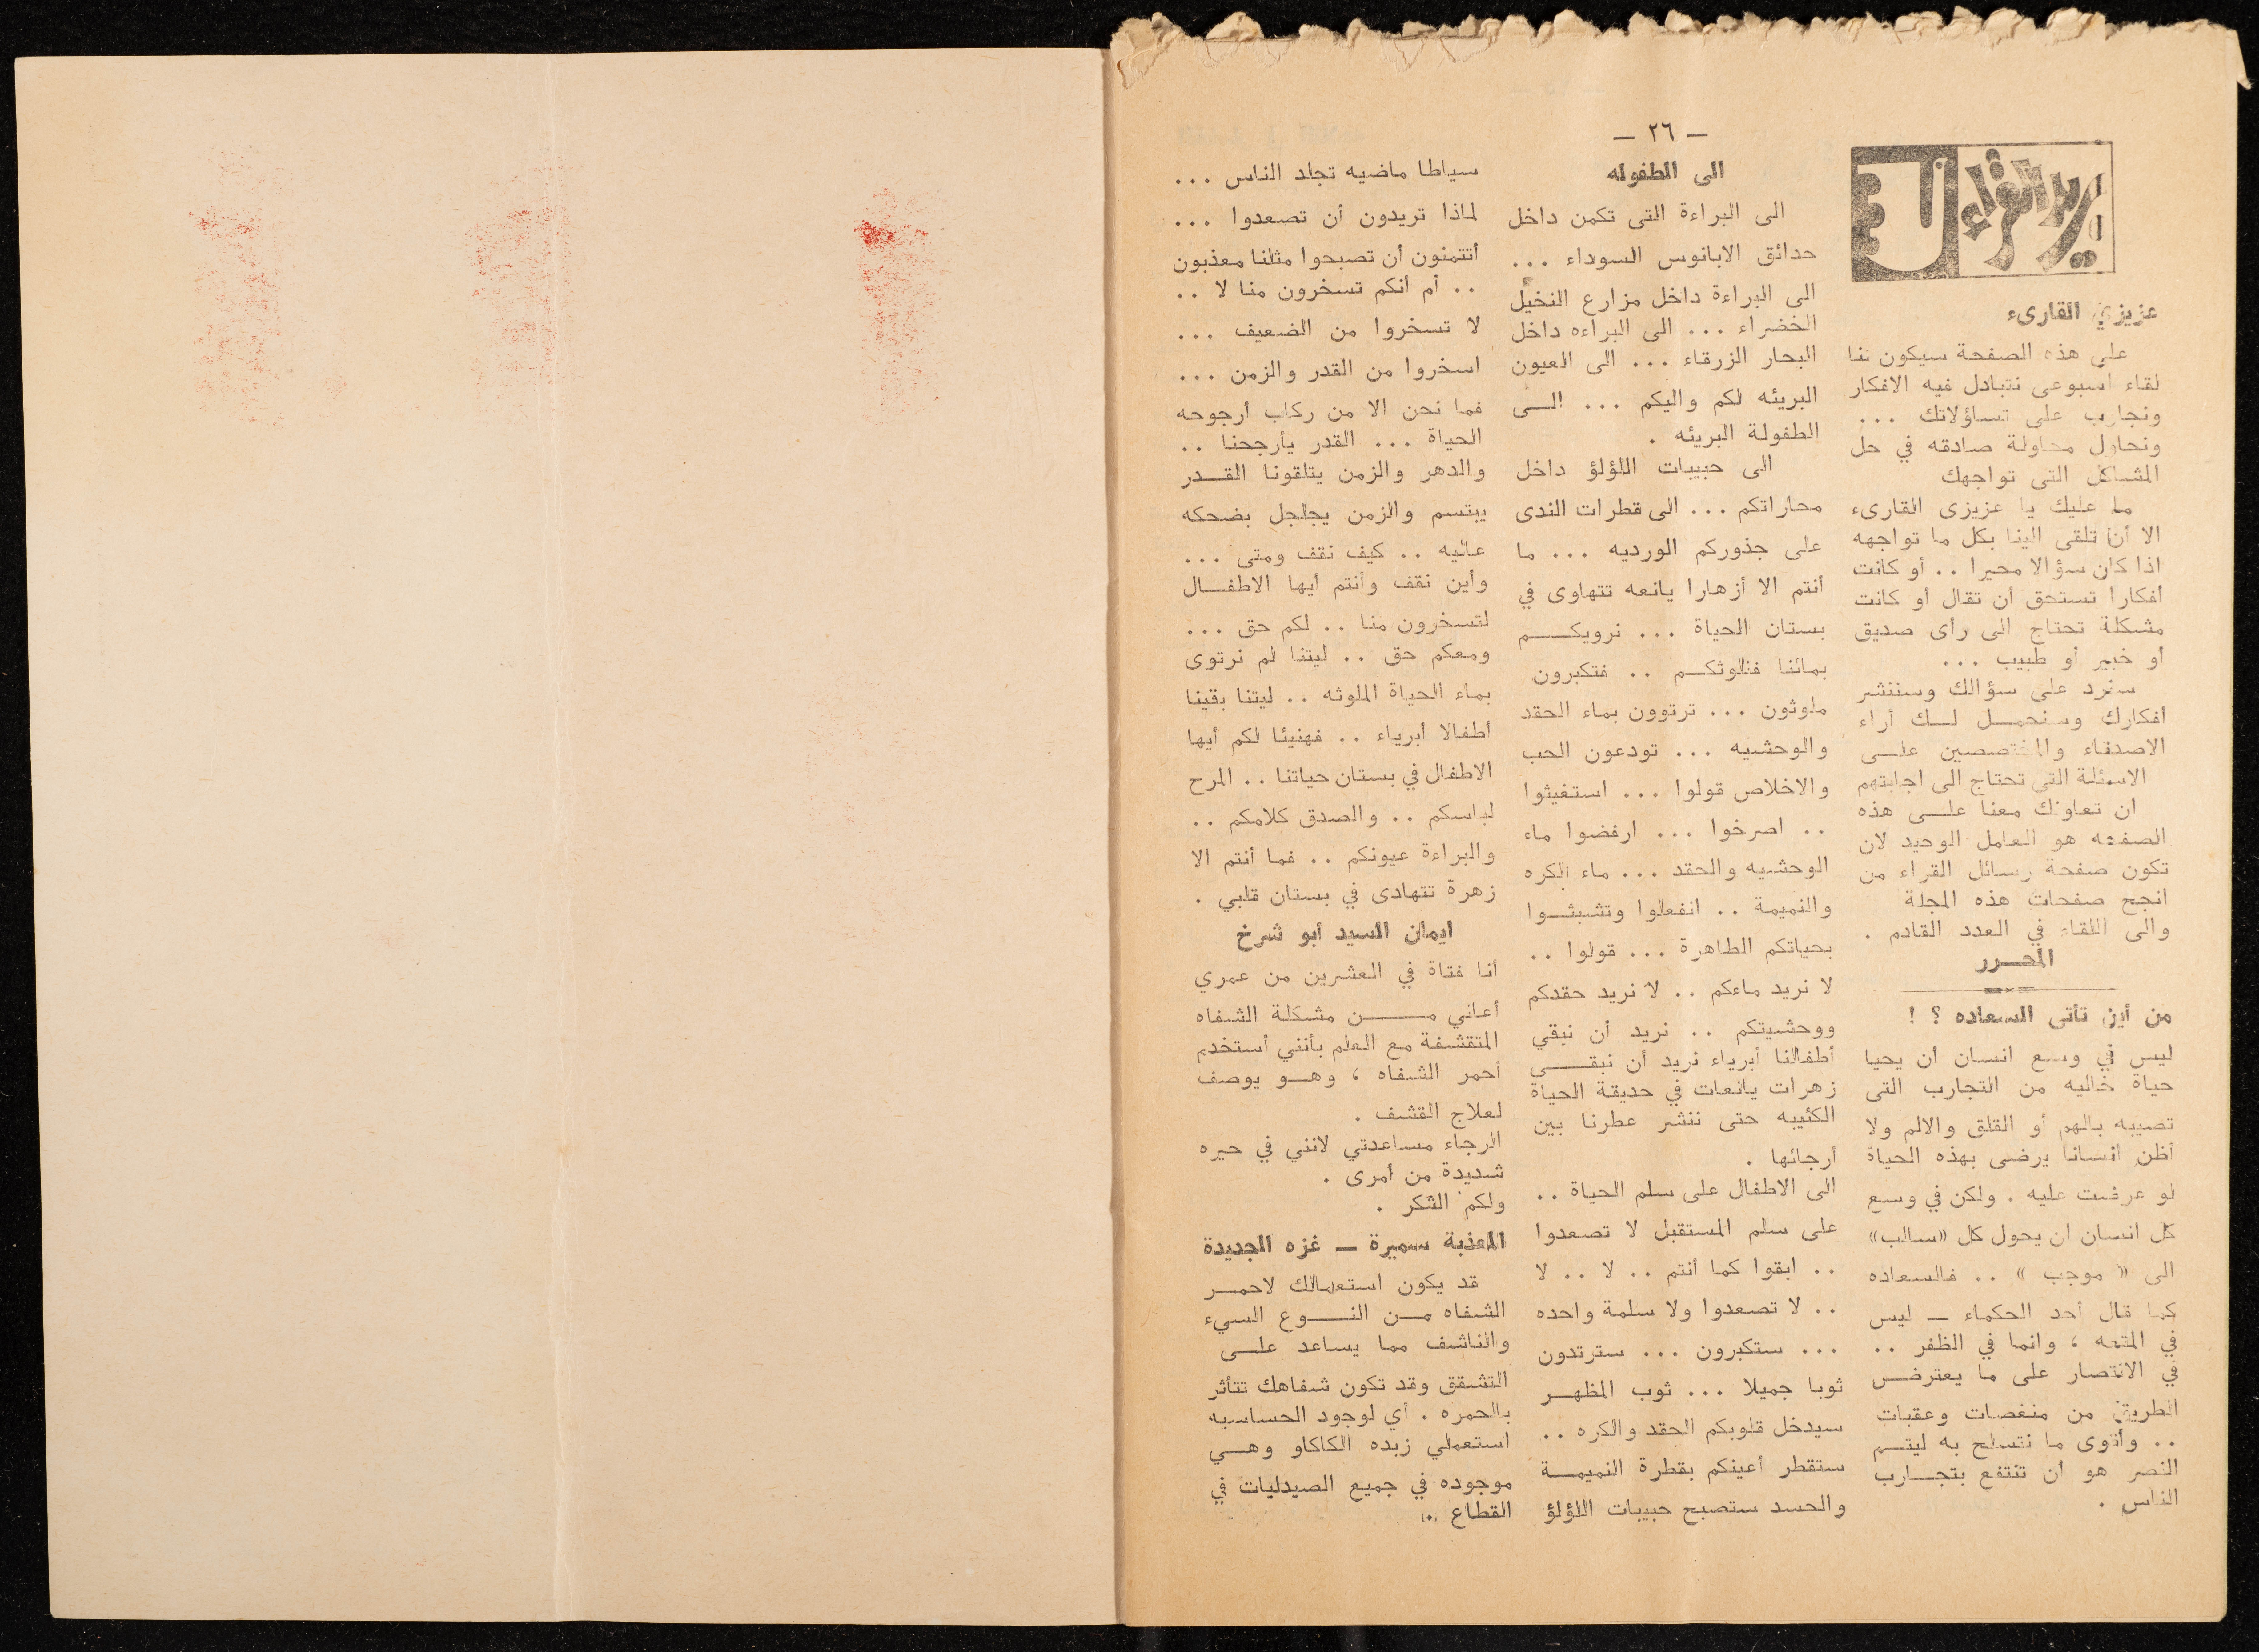 — ٢٦ —
بريد القراء
عزيزي القارىء
على هذه الصفحة سيكون لنا
لقاء اسبوعى نتبادل فيه الافكار
ونجاوب على تساؤلاتك ...
ونحاول محاولة صادقه في حل
المشاكل التى تواجهك
ما عليك يا عزيزى القارىء
الا أن تلقى الينا بكل ما تواجهه
اذا كان سؤالا محيرا .. أو كانت
أفكارا تستحق أن تقال أو كانت
مشكلة تحتاج الى رأى صديق
أو خبير أو طبيب ...
سنرد على سؤالك وسننشر
أفكارك وسنحمـل لـك أراء
الاصدقاء والمختصصين علـى
الاسئلة التى تحتاج الى اجابتهم
ان تعاونك معنا علـى هذه
الصفحه هو العامل الوحيد لان
تكون صفحة رسائل القراء من
انجح صفحات هذه المجلة
والى اللقاء في العدد القادم .
المحـرر
من أين تأتى السعاده ؟ !
ليس في وسع انسان أن يحيا
حياة خاليه من التجارب التى
تصيبه بالهم أو القلق والالم ولا
أظن انسانا يرضى بهذه الحياة
لو عرضت عليه . ولكن في وسع
كل انسان ان يحول كل «سالب»
الى « موجب » .. فالسعاده
كما قال أحد الحكماء — ليس
في المتعه ، وانما في الظفر ..
في الانتصار على ما يعترض
الطريق من منغصات وعقبات
.. وأقوى ما نتسلح به ليتـم
النصر هو ان تنتفع بتجـارب
الناس .
الى الطفوله
الى البراءة التى تكمن داخل
حدائق الابانوس السوداء ...
الى البراءة داخل مزارع النخيل
الخضراء ... الى البراءه داخل
البحار الزرقاء ... الى العيون
البريئه لكم واليكم ... الـى
الطفولة البريئه .
الى حبيبات اللؤلؤ داخل
محاراتكم ... الى قطرات الندى
على جذوركم الورديه ... ما
أنتم الا أزهارا يانعه تتهاوى في
بستان الحياة ... نرويكـم
بمائنا فنلوثكـم .. فتكبرون
ملوثون ... ترتوون بماء الحقد
والوحشيه ... تودعون الحب
والاخلاص قولوا ... استغيثوا
.. اصرخوا ... ارفضوا ماء
الوحشيه والحقد ... ماء الكره
والنميمة .. انفعلوا وتشبثـوا
بحياتكم الطاهرة ... قولوا ..
لا نريد ماءكم .. لا نريد حقدكم
ووحشيتكم .. نريد أن نبقي
أطفالنا أبرياء نريد أن نبقـى
زهرات يانعات في حديقة الحياة
الكئيبه حتى ننشر عطرنا بين
أرجائها .
الى الاطفال على سلم الحياة ..
على سلم المستقبل لا تصعدوا
.. ابقوا كما أنتم .. لا .. لا
.. لا تصعدوا ولا سلمة واحده
... ستكبرون ... سترتدون
ثوبا جميلا ... ثوب المظهـر
سيدخل قلوبكم الحقد والكره ..
ستقطر أعينكم بقطرة النميمـة
والحسد ستصبح حبيبات اللؤلؤ
سياطا ماضيه تجلد الناس ...
لماذا تريدون أن تصعدوا ...
أتتمنون أن تصبحوا مثلنا معذبون
.. أم أنكم تسخرون منا لا ..
لا تسخروا من الضعيف ...
اسخروا من القدر والزمن ...
فما نحن الا من ركاب أرجوحه
الحياة ... القدر يأرجحنا ..
والدهر والزمن يتلقونا القـدر
يبتسم والزمن يجلجل بضحكه
عاليه .. كيف نقف ومتى ...
وأين نقف وأنتم أيها الاطفـال
لتسخرون منا .. لكم حق ...
ومعكم حق .. ليتنا لم نرتوى
بماء الحياة الملوثه .. ليتنا بقينا
أطفالا أبرياء .. فهنيئا لكم أيها
الاطفال في بستان حياتنا .. المرح
لباسكم .. والصدق كلامكم ..
والبراءة عيونكم .. فما أنتم الا
زهرة تتهادى في بستان قلبي .
ايمان السيد أبو شرخ
أنا فتاة في العشرين من عمري
أعاني مـن مشكلة الشفاه
المتقشفة مع العلم بأنني أستخدم
أحمر الشفاه ، وهـو يوصف
لعلاج القشف .
الرجاء مساعدتي لانني في حيره
شديدة من أمرى .
ولكم الشكر .
المعذبة سميرة — غزه الجديدة
قد يكون استعمالك لاحمـر
الشفاه مـن النـوع السيء
والناشف مما يساعد علـى
التشقق وقد تكون شفاهك تتأثر
بالحمره . أي لوجود الحساسيه
استعملي زبده الكاكاو وهـي
موجوده في جميع الصيدليات في
القطاع .